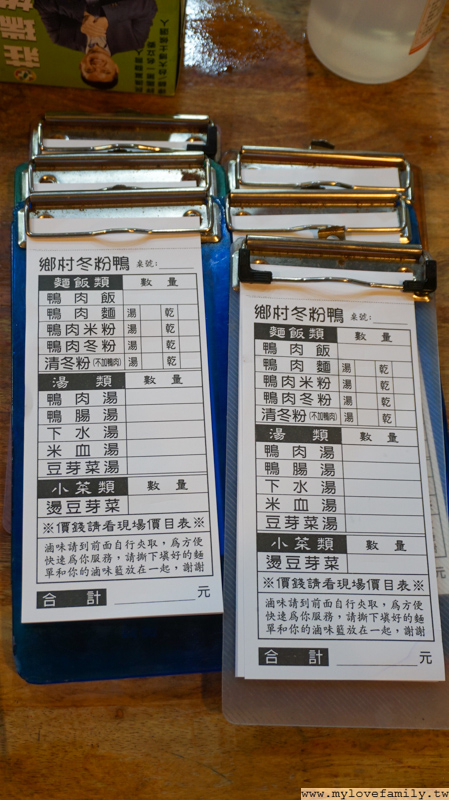 鄉村冬粉鴨 桌號:
麵飯類 數量
鴨肉飯
鴨肉麵 湯 乾
鴨肉米粉 湯 乾
鴨肉冬粉 湯 乾
清冬粉(不加鴨肉) 湯 乾
湯類 數量
鴨肉湯
鴨腸湯
下水湯
米血湯
豆芽菜湯
小菜類 數量
燙豆芽菜
※價錢請看現場價目表※
滷味請到前面自行夾取，為方便
快速為你服務，請撕下填好的麵
單和你的滷味籃放在一起，謝謝
合計 元
鄉村冬粉鴨 桌號:
麵飯類 數量
鴨肉飯
鴨肉麵 湯 乾
鴨肉米粉 湯 乾
鴨肉冬粉 湯 乾
清冬粉(不加鴨肉) 湯 乾
湯類 數量
鴨肉湯
鴨腸湯
下水湯
米血湯
豆芽菜湯
小菜類 數量
燙豆芽菜
※價錢請看現場價目表※
滷味請到前面自行夾取，為方便
快速為你服務，請撕下填好的麵
單和你的滷味籃放在一起，謝謝
合計 元
莊瑞雄
www.mylovefamily.tw